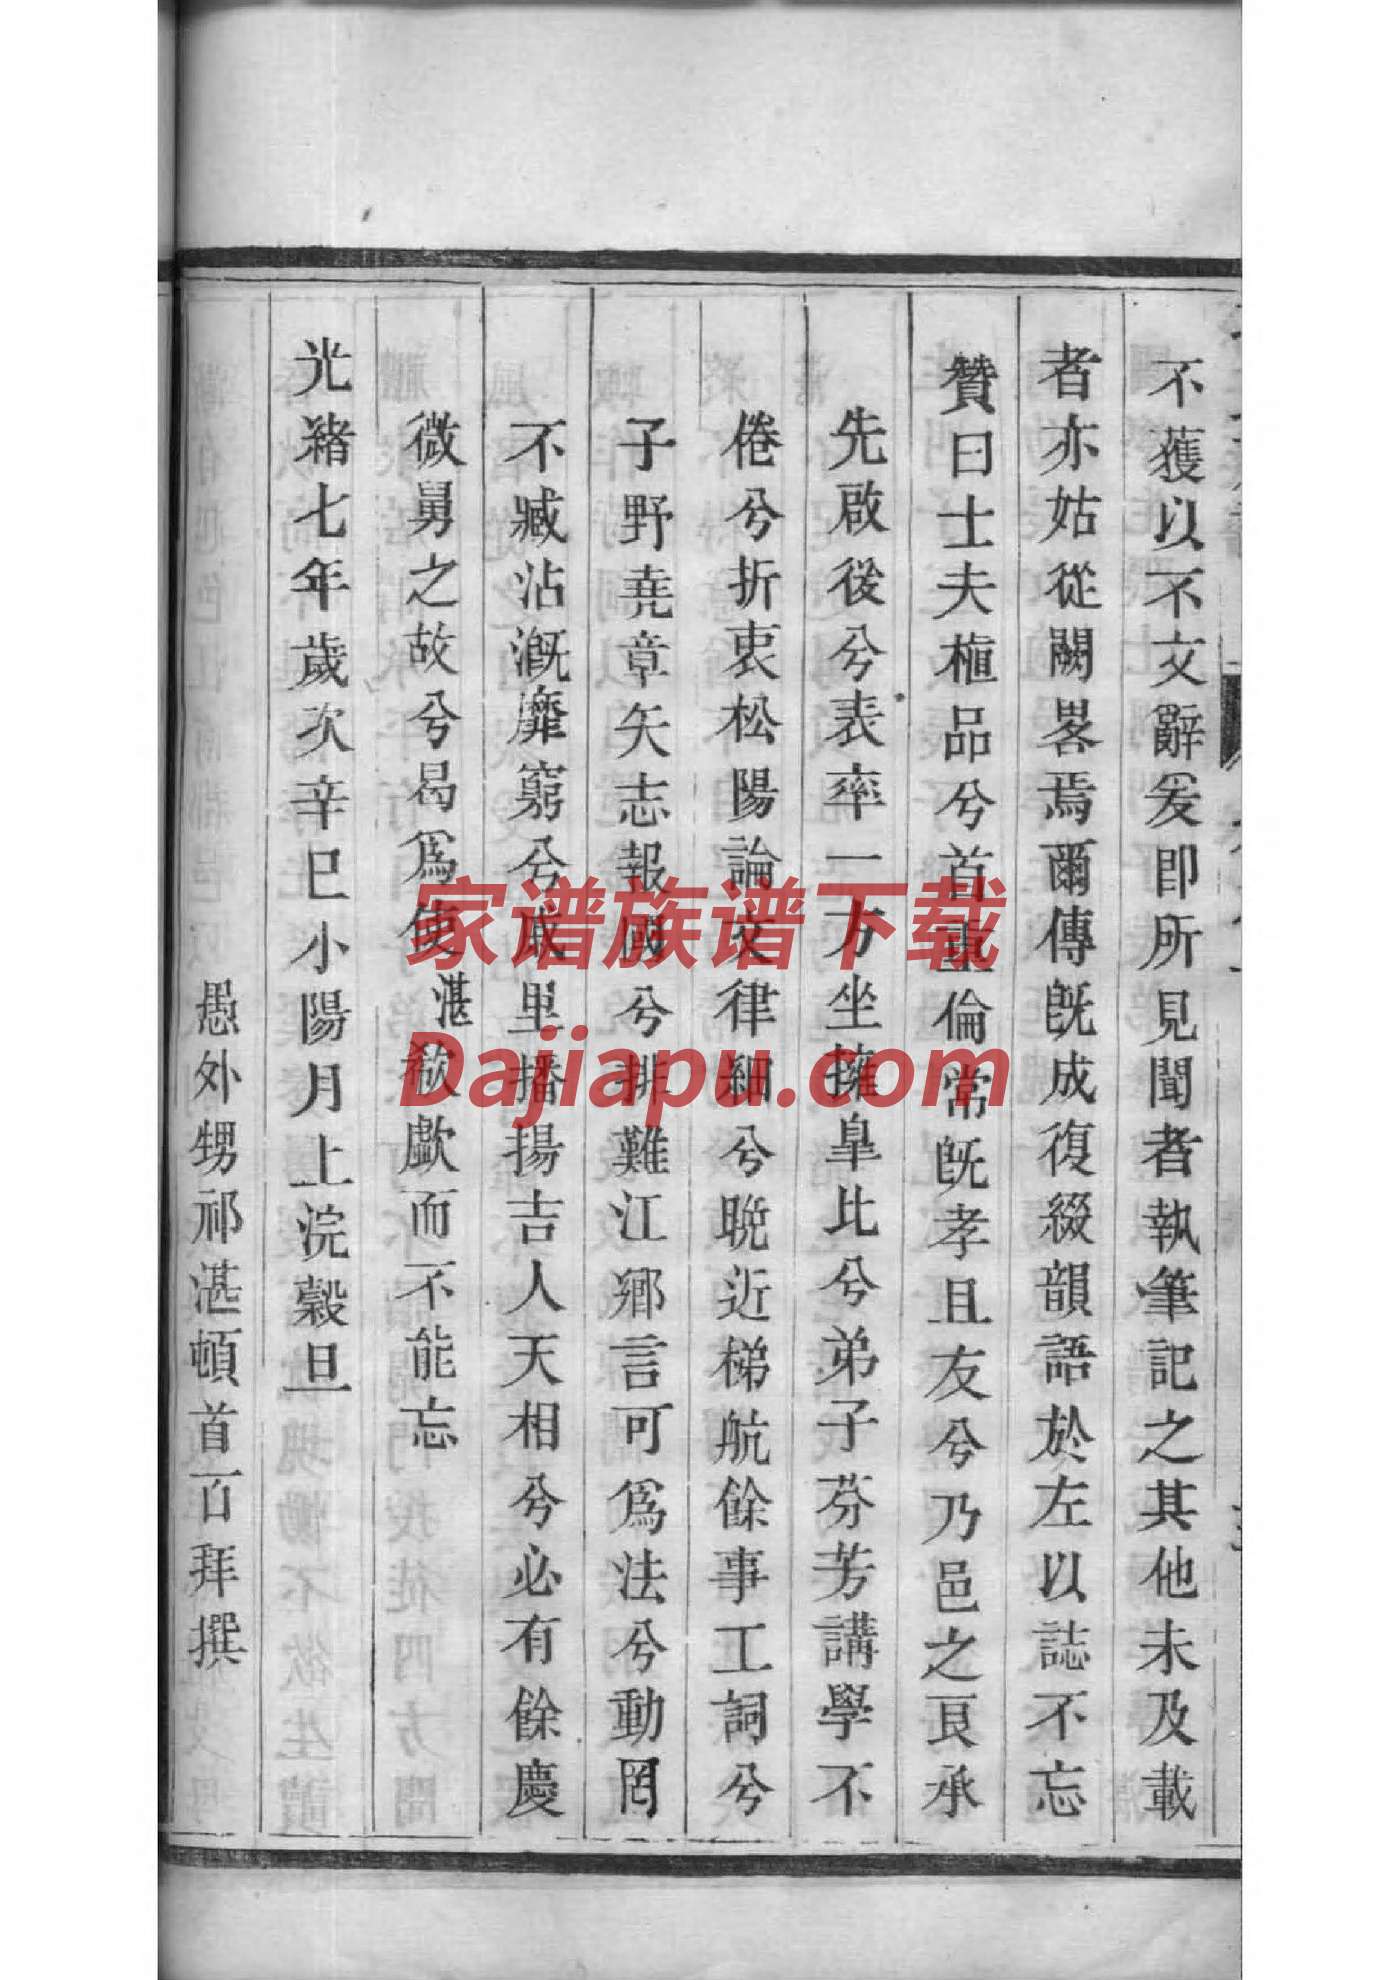 不獲以不文辭爰即所見聞者執筆記之其他未及載
者亦姑從闕畧焉爾傳旣成復綴韻語於左以誌不忘
贊曰士夫植品兮首重倫常旣孝且友兮乃邑之良承
先啟後兮表率一方坐擁皐比兮弟子芬芳講學不
倦兮折衷松陽論文律細兮晚近梯航餘事工詞兮
子野堯章矢志報國兮排難江鄉言可爲法兮動罔
不臧沾漑靡窮兮戚里播揚吉人天相兮必有餘慶
微舅之故兮曷爲使湛欷歔而不能忘
光緒七年歲次辛巳小陽月上浣穀旦
愚外甥祁湛頓首百拜撰
家谱族谱下载
Dajiapu.com